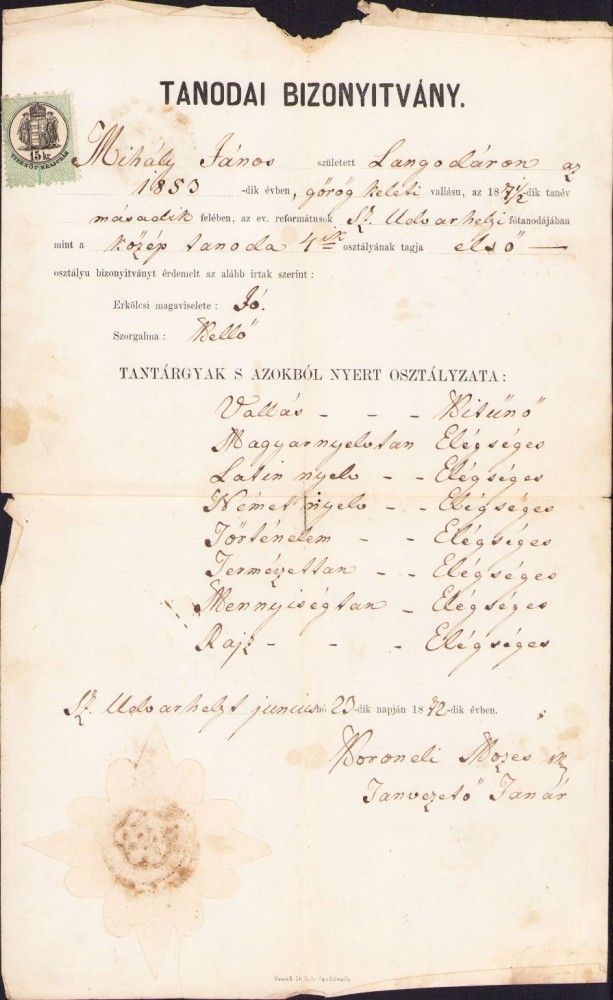 TANODAI BIZONYITVÁNY.
15 kr
TIZENÖT KRAJCZÁR
Mihály János született Langodáron az
1853 -dik évben, görög keleti vallásu, az 18 71/2 -dik tanév
második felében, az ev. reformátusok Sz. Udvarhelyi főtanodájában
mint a közép tanoda 4ik osztályának tagja első —
osztályu bizonyitványt érdemelt az alább irtak szerint:
Erkölcsi magaviselete: Jó.
Szorgalma: Kellő
TANTÁRGYAK S AZOKBÓL NYERT OSZTÁLYZATA:
Vallás - - - Kitünő
Magyarnyelvtan Elégséges
Latin nyelv - - Elégséges
Német nyelv - - Elégséges
Történelem - - Elégséges
Természettan - - Elégséges
Mennyiségtan - Elégséges
Rajz - - - Elégséges
Sz. Udvarhelyt junius hó 23-dik napján 18 72-dik évben.
Mozes
Tanvezető Tanár